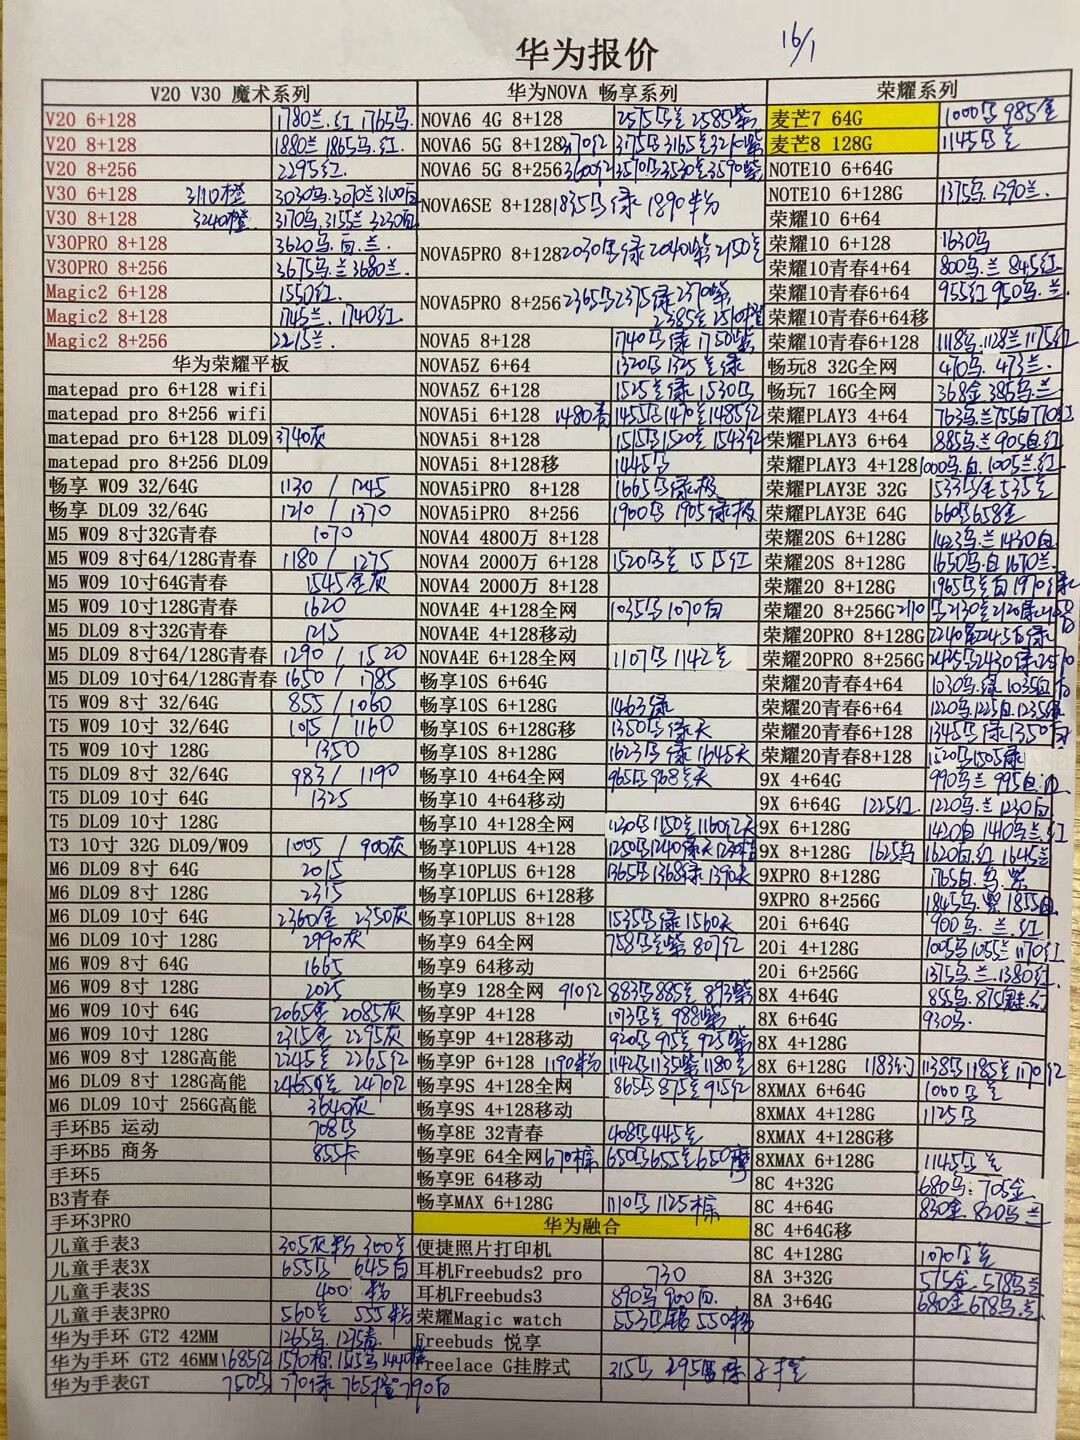 华为报价
16/1
V20 V30 魔术系列
V20 6+128 1780兰.红 1765乌.
V20 8+128 1880兰 1865乌.红.
V20 8+256 2295红.
V30 6+128 3110橙 3030乌.3070兰3100白
V30 8+128 3240橙. 3170乌.3155兰 3230白
V30PRO 8+128 3620乌.白.兰.
V30PRO 8+256 3675乌.兰3680兰.
Magic2 6+128 1550红.
Magic2 8+128 1745兰. 1740红.
Magic2 8+256 2215兰.
华为荣耀平板
matepad pro 6+128 wifi
matepad pro 8+256 wifi
matepad pro 6+128 DL09 3740灰
matepad pro 8+256 DL09
畅享 W09 32/64G 1130 / 1245
畅享 DL09 32/64G 1210 / 1370
M5 W09 8寸32G青春 1070
M5 W09 8寸64/128G青春 1180 / 1275
M5 W09 10寸64G青春 1545金灰
M5 W09 10寸128G青春 1620
M5 DL09 8寸32G青春 1215
M5 DL09 8寸64/128G青春 1290 / 1520
M5 DL09 10寸64/128G青春 1650 / 1785
T5 W09 8寸 32/64G 855 / 1060
T5 W09 10寸 32/64G 1015 / 1160
T5 W09 10寸 128G 1350
T5 DL09 8寸 32/64G 983 / 1190
T5 DL09 10寸 64G 1325
T5 DL09 10寸 128G
T3 10寸 32G DL09/W09 1005 / 900灰
M6 DL09 8寸 64G 2015
M6 DL09 8寸 128G 2315
M6 DL09 10寸 64G 2360金 2350灰
M6 DL09 10寸 128G 2990灰
M6 W09 8寸 64G 1665
M6 W09 8寸 128G 2025
M6 W09 10寸 64G 2065金 2085灰
M6 W09 10寸 128G 2315金 2295灰
M6 W09 8寸 128G高能 2245兰 2265红
M6 DL09 8寸 128G高能 2465兰 2470红
M6 DL09 10寸 256G高能 3640灰
手环B5 运动 708乌
手环B5 商务 855卡
手环5
B3青春
手环3PRO
儿童手表3 305灰粉 300兰
儿童手表3X 655乌 645白
儿童手表3S 400 粉
儿童手表3PRO 560兰 555粉
华为手环 GT2 42MM 1265乌.1275青.
华为手环 GT2 46MM 1685红 1590棕.1515乌1440橙
华为手表GT 750乌 770绿 765橙790白
华为NOVA 畅享系列
NOVA6 4G 8+128 2575乌兰 2585紫
NOVA6 5G 8+128 3170红 3175乌3165兰3210紫
NOVA6 5G 8+256 3600红 3570乌3530兰3590紫
NOVA6SE 8+128 1835乌绿 1890粉
NOVA5PRO 8+128 2030乌绿 2040紫 2150兰
NOVA5PRO 8+256 2365乌2375绿2370紫
2385兰2510橙
NOVA5 8+128 1740乌绿 1750紫
NOVA5Z 6+64 1320乌 1325兰绿
NOVA5Z 6+128 1525兰绿 1530乌
NOVA5i 6+128 1480青 1455乌1470兰1485红
NOVA5i 8+128 1515乌1520兰 1543红
NOVA5i 8+128移 1445乌
NOVA5iPRO 8+128 1665乌绿极
NOVA5iPRO 8+256 1900乌 1905绿极
NOVA4 4800万 8+128
NOVA4 2000万 6+128 1520乌兰 1515红
NOVA4 2000万 8+128
NOVA4E 4+128全网 1035乌1070白
NOVA4E 4+128移动
NOVA4E 6+128全网 1107乌 1142兰
畅享10S 6+64G
畅享10S 6+128G 1463绿
畅享10S 6+128G移 1350乌绿天
畅享10S 8+128G 1623乌绿 1645天
畅享10 4+64全网 965乌968兰天
畅享10 4+64移动
畅享10 4+128全网 1130乌1150兰1160红天
畅享10PLUS 4+128 1250乌1240绿天1230橙
畅享10PLUS 6+128 1365乌1368绿 1390天
畅享10PLUS 6+128移
畅享10PLUS 8+128 1535乌绿 1560天
畅享9 64全网 758乌兰紫 807红
畅享9 64移动
畅享9 128全网 910红 883乌885兰 893紫
畅享9P 4+128 1073乌兰 988紫
畅享9P 4+128移动 920乌 915兰 925紫
畅享9P 6+128 1190粉 1142乌1135紫1180兰
畅享9S 4+128全网 865乌875兰915红
畅享9S 4+128移动
畅享8E 32青春 408乌445兰
畅享9E 64全网 670棕 650乌655兰650摩
畅享9E 64移动
畅享MAX 6+128G 1110乌 1125棕
华为融合
便捷照片打印机
耳机Freebuds2 pro 730
耳机Freebuds3 890乌 900白.
荣耀Magic watch 553乌银 550粉
Freebuds 悦享
Freelace G挂脖式 315乌
荣耀系列
麦芒7 64G 1000乌 985金
麦芒8 128G 1145乌兰
NOTE10 6+64G
NOTE10 6+128G 1375乌.1390兰.
荣耀10 6+64
荣耀10 6+128 1630乌
荣耀10青春4+64 800乌.兰 845红
荣耀10青春6+64 955红 950乌.兰.
荣耀10青春6+64移
荣耀10青春6+128 1118乌.1128兰1175红
畅玩8 32G全网 470乌. 473兰.
畅玩7 16G全网 368金 385乌.兰
荣耀PLAY3 4+64 763乌.兰755白770红
荣耀PLAY3 6+64 885乌.兰905白.红
荣耀PLAY3 4+128 1000乌.白.1005兰.红
荣耀PLAY3E 32G 533乌金535兰
荣耀PLAY3E 64G 660乌658金
荣耀20S 6+128G 1423乌.兰1430白.
荣耀20S 8+128G 1650乌.白1670兰.
荣耀20 8+128G 1965乌兰白1970绿
荣耀20 8+256G 2110乌2130兰2120绿
荣耀20PRO 8+128G
荣耀20PRO 8+256G 2425乌2430绿2510
荣耀20青春4+64 1030乌.绿 1035白
荣耀20青春6+64 1220乌1225白1235绿
荣耀20青春6+128 1345乌绿1350白
荣耀20青春8+128 1520乌1505绿
9X 4+64G 990乌兰 995白.红
9X 6+64G 1225红. 1220乌.兰 1230白
9X 6+128G 1420白 1410乌兰.红
9X 8+128G 1625乌 1620白.红 1645兰
9XPRO 8+128G 1765白.乌.紫
9XPRO 8+256G 1845乌.紫 1855白
20i 6+64G 900乌. 兰.红
20i 4+128G 1005乌1055兰1170红
20i 6+256G 1375乌.兰.1380红
8X 4+64G 855乌.875魅.红
8X 6+64G 930乌.
8X 4+128G
8X 6+128G 1183红 1138乌1185兰1170红
8XMAX 6+64G 1000乌兰
8XMAX 4+128G 1125乌
8XMAX 4+128G移
8XMAX 6+128G 1145乌兰
8C 4+32G 680乌. 705金
8C 4+64G 830金.820乌兰
8C 4+64G移
8C 4+128G 1070乌兰
8A 3+32G 575金.578乌兰
8A 3+64G 680金678乌.兰